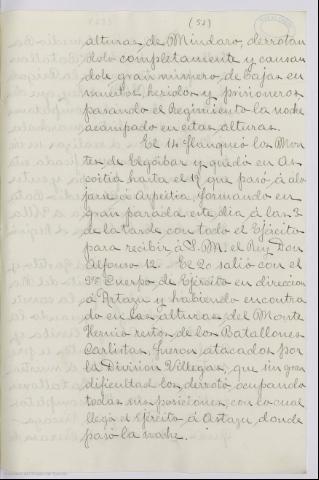 (53)
alturas de Mindaro, derrotan
dolo completamente y causan
dole gran número de bajas en
muertos, heridos y prisioneros
pasando el Regimiento la noche
acampado en estas alturas.
El 14 flanqueó los Mon
tes de Elgoibar y quedó en As
coitia hasta el 19 que pasó á alo
jarse á Azpeitia, formando en
gran parada este dia á las 3
de la tarde con todo el Ejército
para recibir á S.M. el Rey Don
Alfonso 12. El 20 salió con el
2º Cuerpo de Ejército en direccion
á Astazu y habiendo encontra
do en las alturas del Monte
Hernio restos de los Batallones
Carlistas, fueron atacados por
la Division Villegas, que sin gran
dificultad los derrotó ocupando
todas sus posiciones, con lo cual
llegó el Ejército á Astazu, donde
pasó la noche.